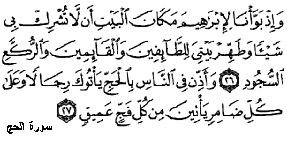 وَإِذْ بَوَّأْنَا لِإِبْرَٰهِيمَ مَكَانَ ٱلْبَيْتِ أَن لَّا تُشْرِكْ بِى
شَيْـًٔا وَطَهِّرْ بَيْتِىَ لِلطَّآئِفِينَ وَٱلْقَآئِمِينَ وَٱلرُّكَّعِ
ٱلسُّجُودِ ٢٦ وَأَذِّن فِى ٱلنَّاسِ بِٱلْحَجِّ يَأْتُوكَ رِجَالًا وَعَلَىٰ
كُلِّ ضَامِرٍ يَأْتِينَ مِن كُلِّ فَجٍّ عَمِيقٍ ٢٧
سورة الحج